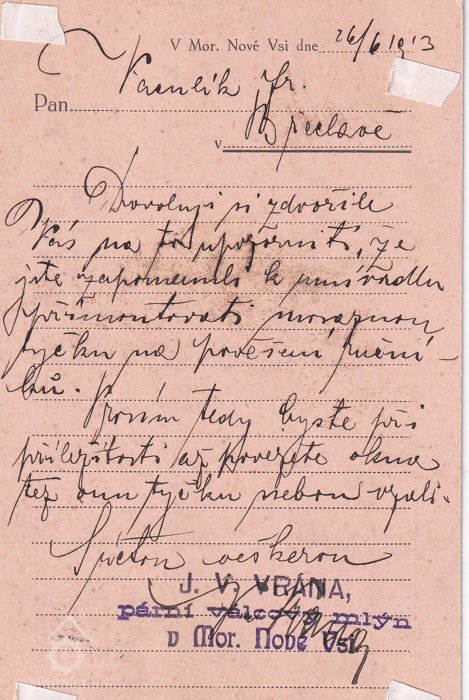 V Mor. Nové Vsi dne 26/6 1913
Pan Vaculík Fr.
v Břeclavě
Dovoluji si zdvořile
Vás na to upozorniti, že
jste zapomněli k umývadlu
přimontovati mosaznou
tyčku na pověšení ruční-
ků. Prosím tedy byste při
příležitosti až povezete okna
též onu tyčku sebou vzali.
S úctou veškerou
J. V. VRÁNA,
parní válcový mlýn
v Mor. Nové Vsi.